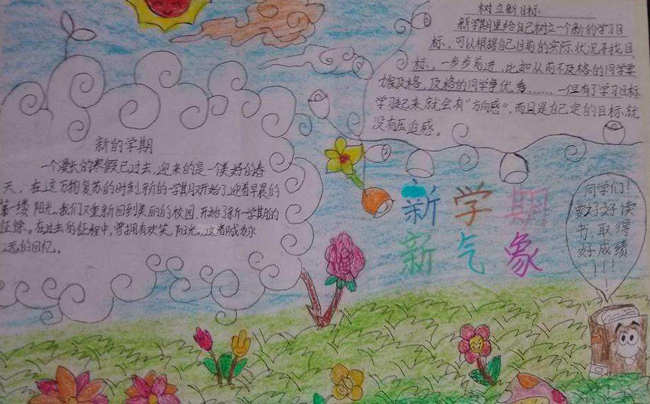 树立新目标
新学期里给自己树立一个新的学习目
标,可以根据自己目前的实际状况寻找目
标,一步步前进,比如从前不及格的同学要
埃及格,及格的同学争优秀……一但有了学习目标
学起来,就会有“方向感”,而且是自己定的目标,就
没有压迫感。
新的学期
一个漫长的寒假已过去,迎来的是一个美好的春
天,在这万物复苏的时刻,新的一学期又开始了,迎着早晨的
第一缕阳光,我们又重新回到美丽的校园,开始了新一学期的
征除。在过去的征程中,曾拥有欢笑,阳光,这都成为永
远的回忆。
新学期
新气象
同学们!
要好好读
书,取得
好成绩
!!!